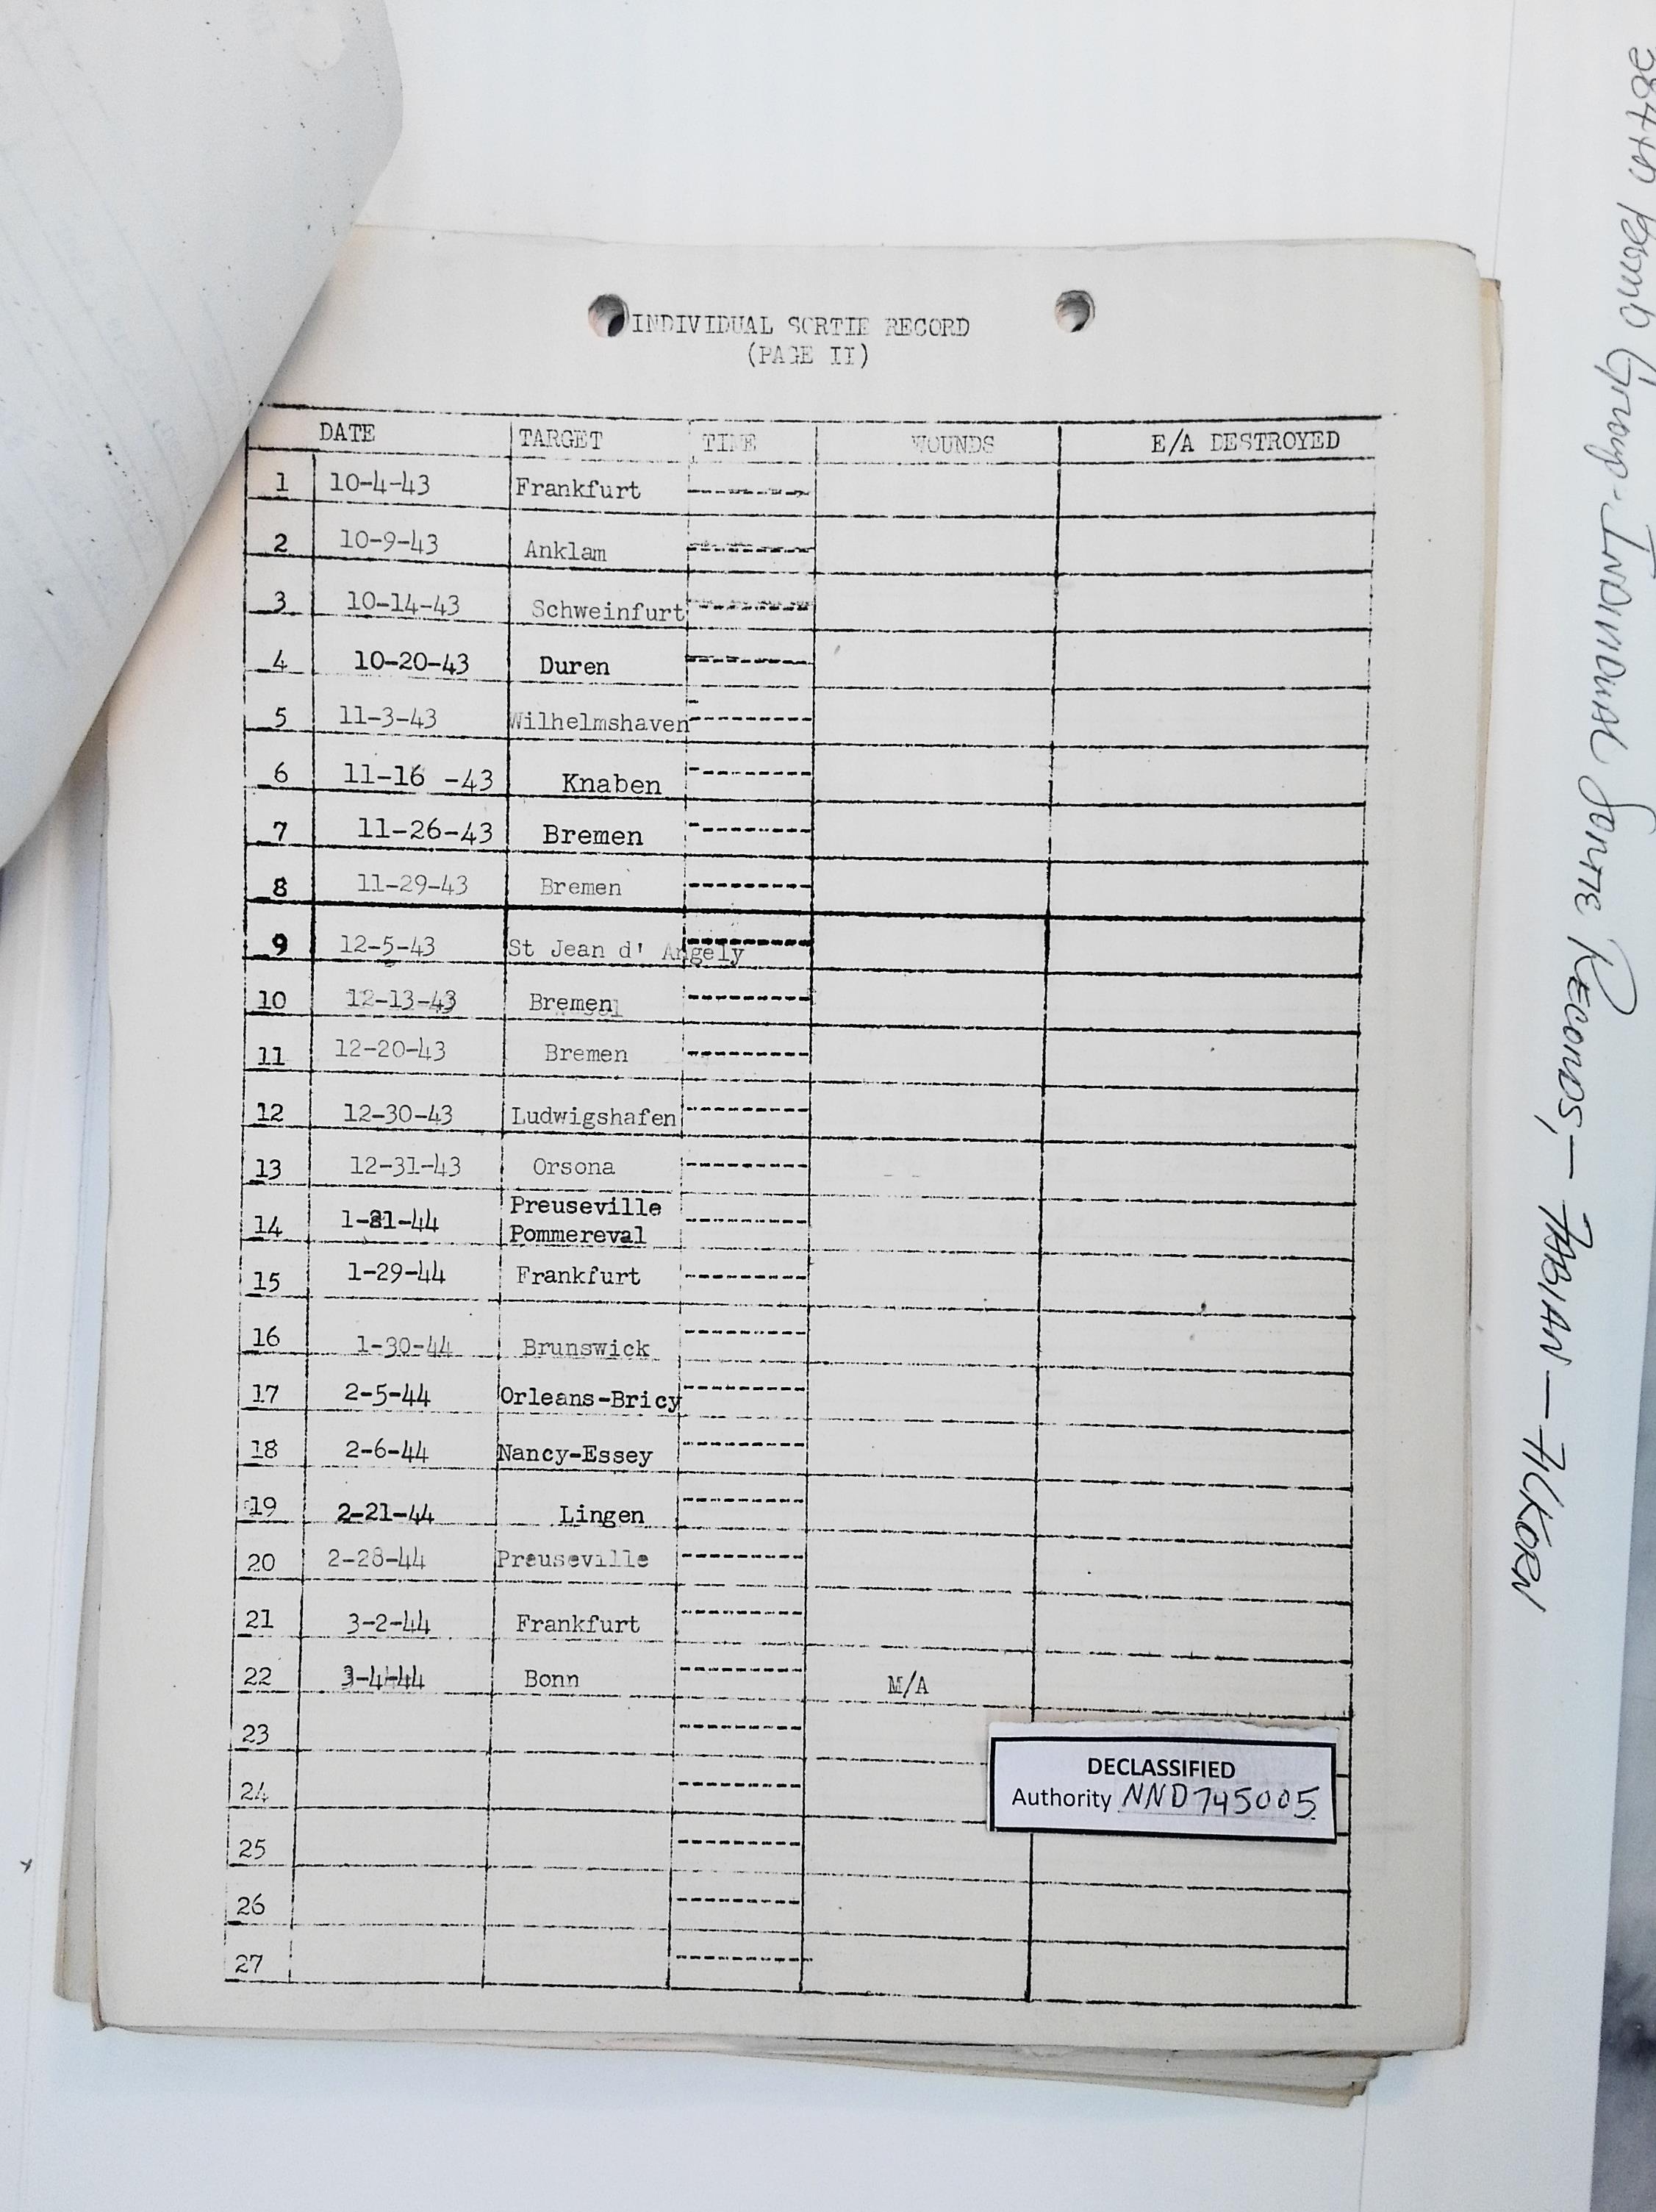 INDIVIDUAL SORTIE RECORD
(PAGE II)
DATE TARGET TIME WOUNDS E/A DESTROYED
1 10-4-43 Frankfurt
2 10-9-43 Anklam
3 10-14-43 Schweinfurt
4 10-20-43 Duren
5 11-3-43 Wilhelmshaven
6 11-16 -43 Knaben
7 11-26-43 Bremen
8 11-29-43 Bremen
9 12-5-43 St Jean d' Angely
10 12-13-43 Bremen
11 12-20-43 Bremen
12 12-30-43 Ludwigshafen
13 12-31-43 Orsona
14 1-21-44 Preuseville
Pommereval
15 1-29-44 Frankfurt
16 1-30-44 Brunswick
17 2-5-44 Orleans-Bricy
18 2-6-44 Nancy-Essey
19 2-21-44 Lingen
20 2-28-44 Preuseville
21 3-2-44 Frankfurt
22 3-4-44 Bonn M/A
23
24
25
26
27
DECLASSIFIED
Authority NND745005
384th Bomb Group - Individual Sortie Records, - FABIAN - FILKORN